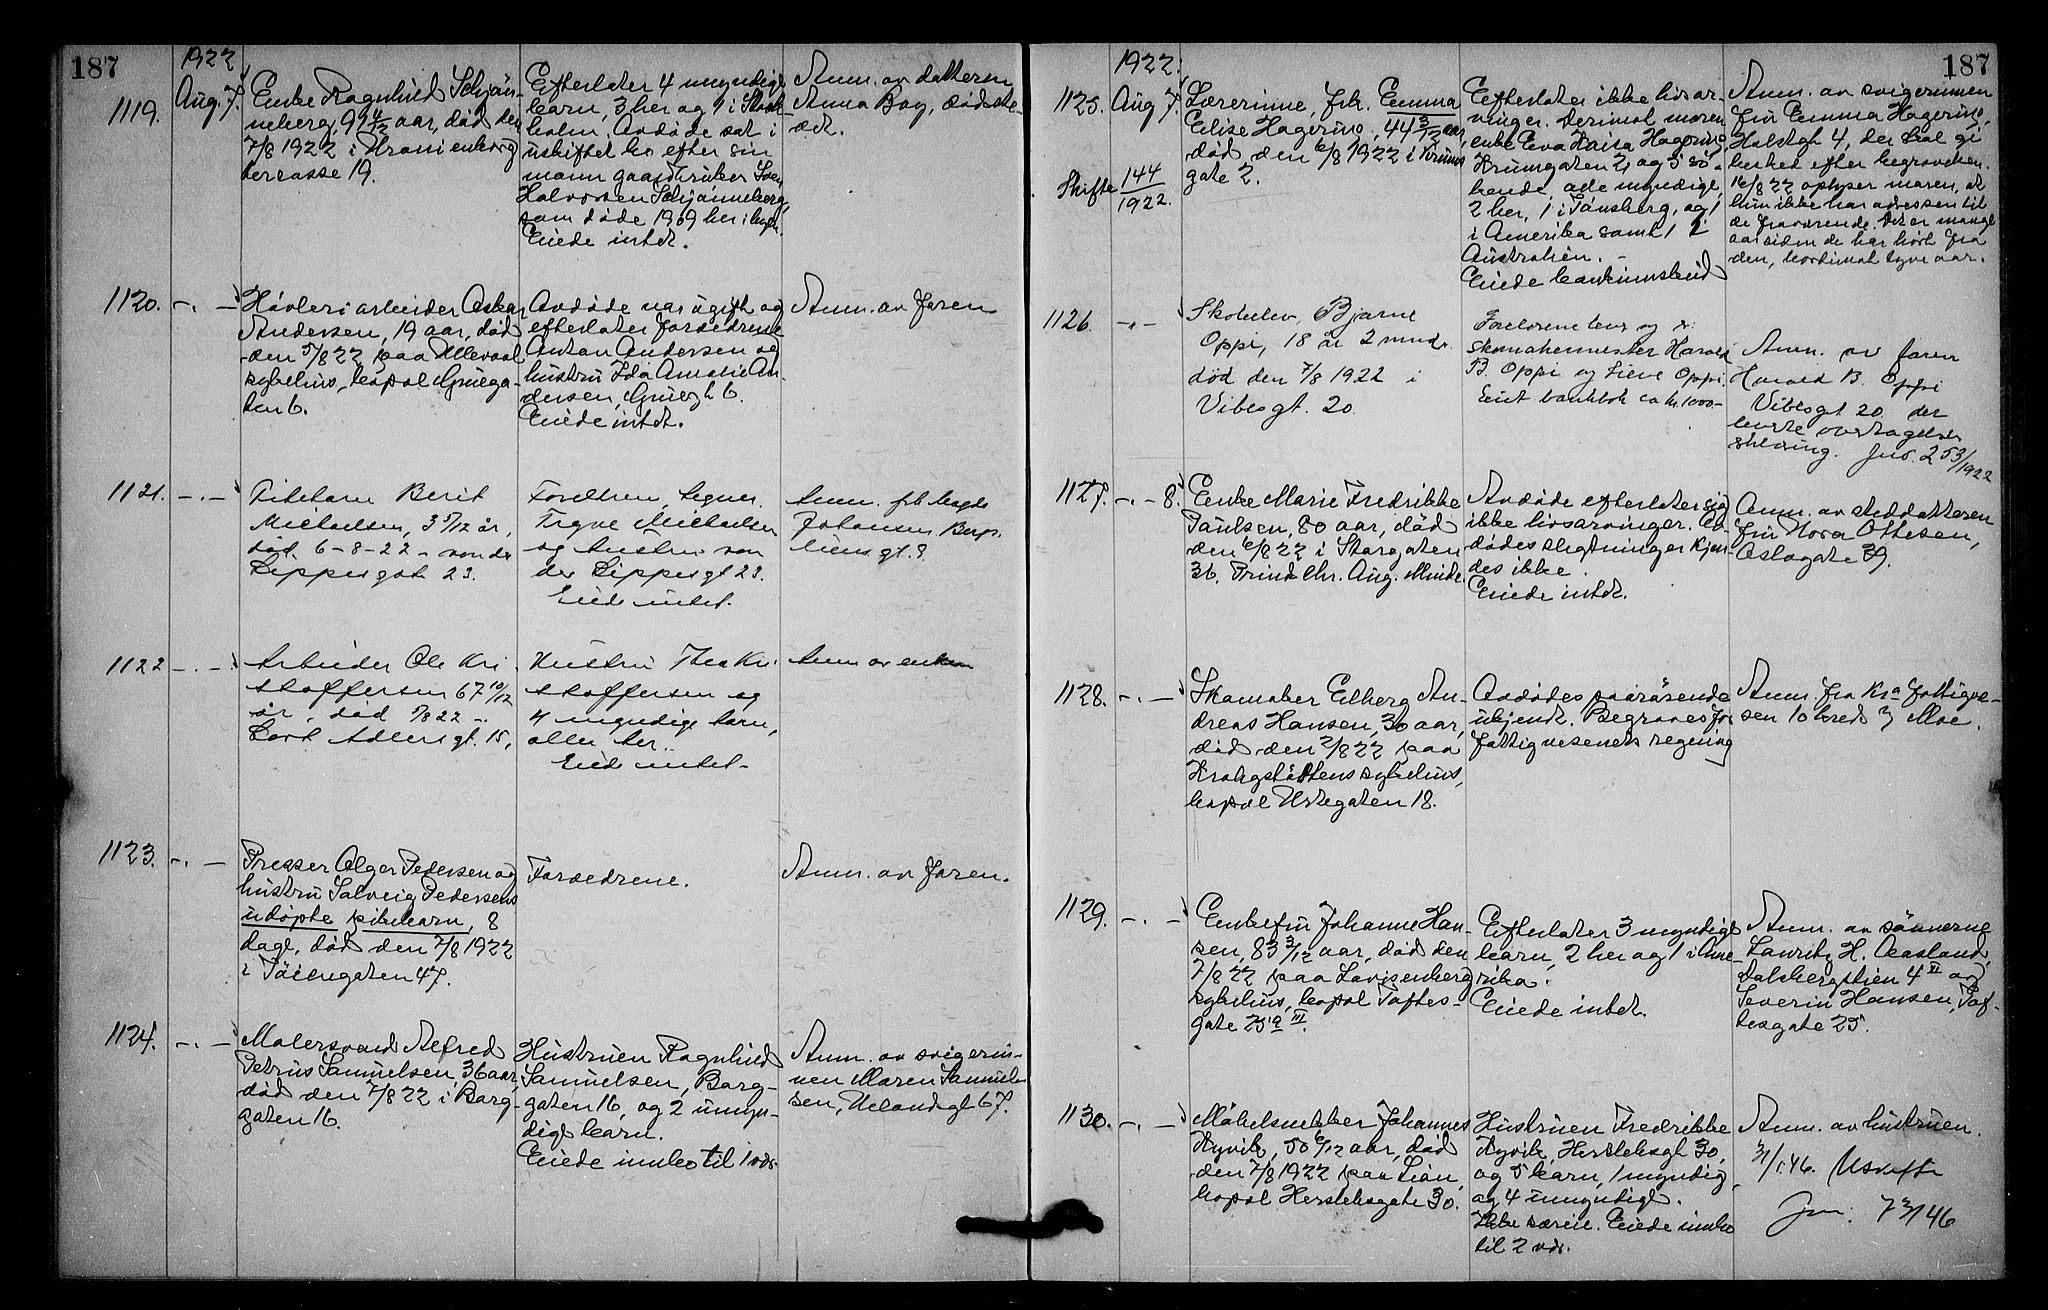 187
1922
1119.
Aug. 7.
Enke Ragnhild Schjän-
neberg, 91 4/12 aar, död den
7/8 1922 i Uranienborg
terrasse 19.
Efterlater 4 myndige
barn, 3 her og 1 i Stock-
holm. Avdöde sat i
uskiftet bo efter sin
mann gaardbruker
Halvorsen Schjänneberg,
som döde 1909 her i byen.
Eiede intet.
Anm. av datteren
Anna Boy, södste-
det.
1120.
Hövleriarbeider Oskar
Andersen, 19 aar, död
den 5/8 22 paa Ullevaal
sykehus, bopæl Grüega-
ten 6.
Avdöde var ugift og
efterlater forældrene
Anton Andersen og
hustru Ida Amalie An-
dersen, Grüegt 6.
Eiede intet.
Anm. av faren
1121.
Pikebarn Berit
Michaelsen, 3 5/12 år,
död 6-8-22 - von der
Lippesgate 23.
Forældrene,
Trygve Michaelsen
og hustru von
der Lippesgt 23.
Eiede intet.
Anm. frk Magda
Johansen,
1122
Arbeider Ole Kri
stoffersen 67 10/12
år, död 5/8 22 -
Cort Adlersgt. 15,
Hustru Thea Kri
stoffersen og
4 myndige barn,
alle her.
Eiede intet.
Anm av enken
1123.
Presser Olger Pedersen og
hustru Solveig Pedersens
udöpte pikebarn, 8
dage, död den 7/8 1922
i Töiengaten 47.
Forældrene.
Anm. av faren.
1124.
Malersvend Alfred
Petrus Samuelsen, 36 aar,
död den 7/8 22 i Borg-
gaten 16.
Hustruen Ragnhild
Samuelsen, Borg-
gaten 16, og 2 umyn-
dige barn.
Eiede innbo til 1 vær.
Anm. av svigerin-
nen Maren Samuel-
sen, Uelandsgt 67.
187
1922.
1125.
Aug 7.
Skifte 144/1922.
Lærerinne, frk. Emma
Elise Hagerino, 44 3/12 aar,
död den 6/8 1922 i
gate 2.
Efterlater ikke livsar-
vinger. Derimot moren
enke Eva Kaisa Hagerino,
Krumgaten 2, og 5 sö-
skende, alle myndige,
2 her, 1 i Tönsberg, og 1
i Amerika samt 1 i
Australien. -
Eiede bankinnskud
Anm. av svigerinnen
fru Emma Hagerino,
Holstgt 4, der skal gi
besked efter begravelsen.
16/8 22 oplyser moren, at
hun ikke har adressen til
de fraværende. Det er mange
aar siden de har hört fra
den, hvorimot tyve aar.
1126.
Skoleelev, Bjarne
Oppi, 18 år 2 mndr.
död den 7/8 1922 i
Vibesgt. 20.
Forældrene lever og er:
skomakermester Harald
B. Oppi og Oppi.
Eiet bankbok ca kr. 1000-
Anm. av faren
Harald B. Oppi
Vibesgt 20. der
leverte overtagelses
erklæring. Jnr. 253/1922
1127.
8.
Enke Marie Fredrikke
Paulsen, 80 aar, död
den 6/8 22 i Storgaten
36, Prinds Chr. Aug. Minde.
Avdöde efterlater sig
ikke livsarvinger. Av-
dödes slegtninger kjen-
des ikke.
Eiede intet.
Anm. av steddatteren
fru Nora Ottesen,
Oslogate 39.
1128.
Skomaker Elberg An-
dreas Hansen, 30 aar,
död den 2/8 22 paa
Krohgstöttens sykehus,
bopæl Urtegaten 18.
Avdödes paarörende
ukjendt. Begraves for
fattigvesenets regning
Anm. fra Kra fattigve-
sen 10 kreds v/ Moe.
1129.
Enkefru Johanne Han-
sen, 83 3/12 aar, död den
7/8 22 paa Lovisenberg
sykehus, bopæl Toftes-
gate 25 a III.
Efterlater 3 myndige
barn, 2 her og 1 i Ame-
rika.
Eiede intet.
Anm. av sönnerne
Lauritz H. Aasland,
Dalsbergstien 4 VI og
Severin Hansen, Tof-
tesgate 25.
1130.
Möbelsnekker Johannes
Ryvik, 50 6/12 aar, död
den 7/8 1922 paa Lian,
bopæl Herslebsgate 30.
Hustruen Fredrikke
Ryvik, Herslebsgt 30,
og 5 barn, 1 myndig
og 4 umyndige.
Ikke særeie. Eiede innbo
til 2 vær.
Anm. av hustruen.
3/1.46. Uskifte
Jnr. 73/46